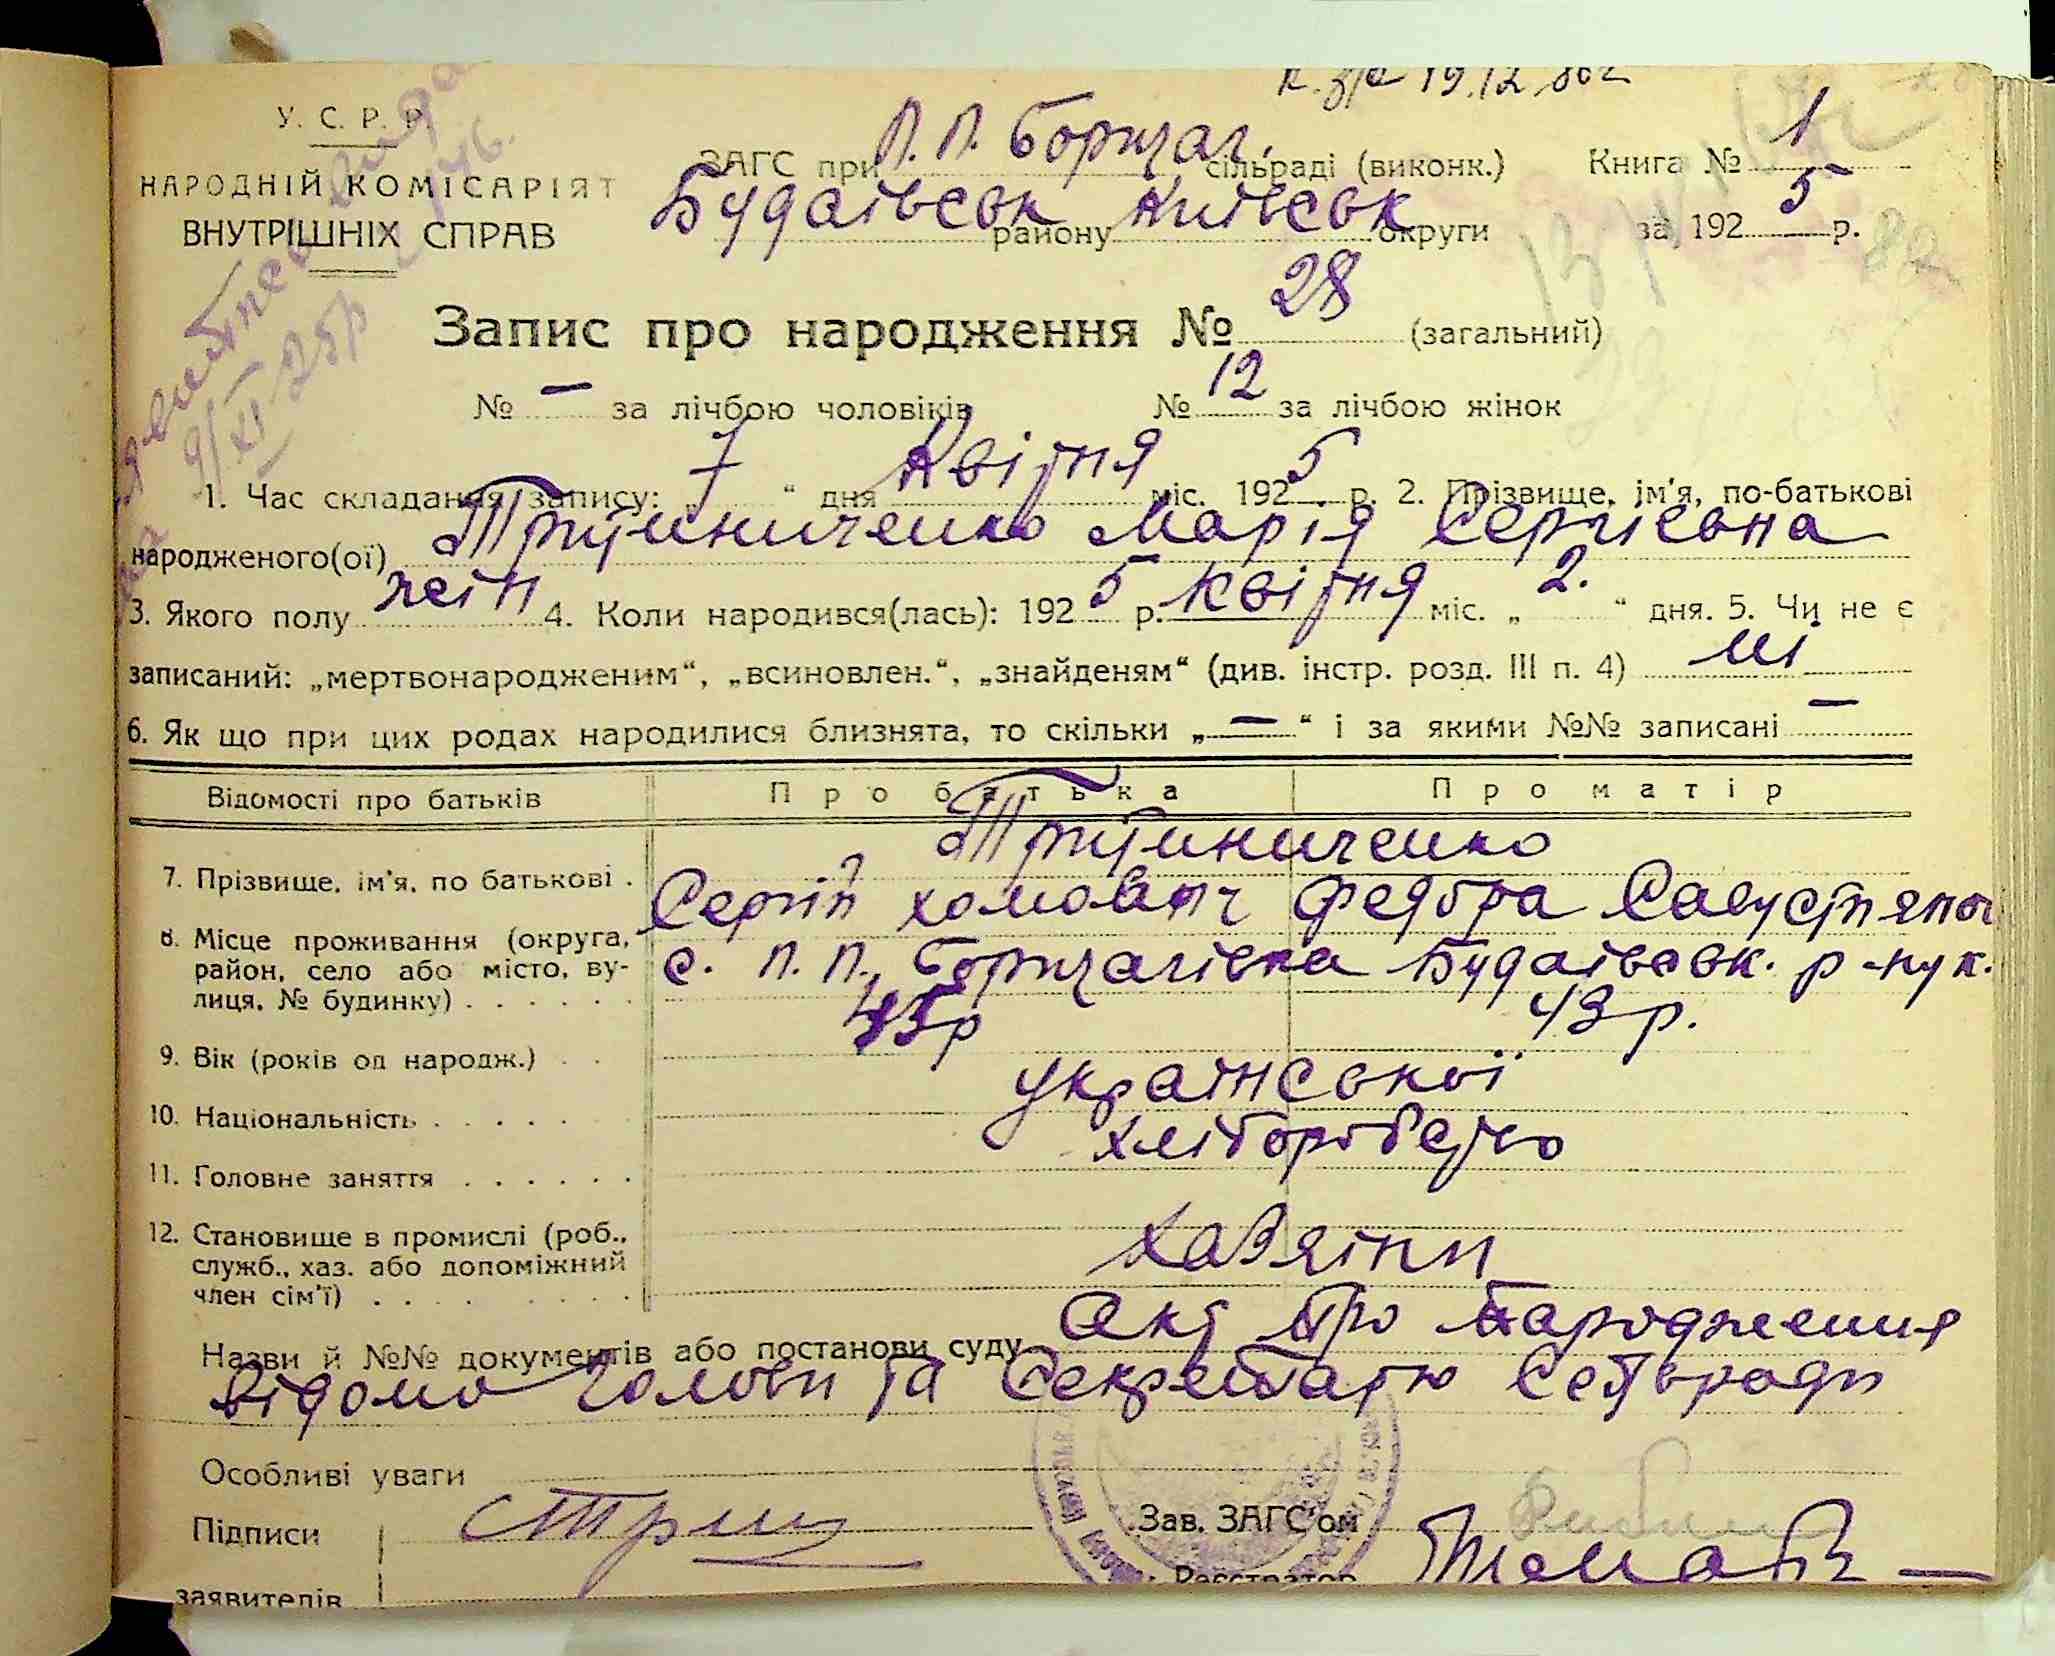 к. з/а 19.12.86г
У. С. Р. Р.
НАРОДНІЙ КОМІСАРІЯТ
ВНУТРІШНІХ СПРАВ
ЗАГС при П. П. Борщаг. сільраді (виконк.) Книга № 1
Будаївськ району Київськ округи за 1925 р.
Запис про народження № 28 (загальний)
№ — за лічбою чоловіків № 12 за лічбою жінок
1. Час складання запису: „7“ дня Квітня міс. 1925 р. 2. Прізвище, ім'я, по-батькові
народженого(ої) Марія Сергієвна
3. Якого полу жін 4. Коли народився(лась): 1925 р. Квітня міс. „2.“ дня. 5. Чи не є
записаний: „мертвонародженим“, „всиновлен.“, „знайденям“ (див. інстр. розд. III п. 4) Ні
6. Як що при цих родах народилися близнята, то скільки „—“ і за якими №№ записані —
Відомості про батьків Про батька Про матір
7. Прізвище, ім'я, по батькові .
Сергій Хомович Федора
8. Місце проживання (округа, район, село або місто, ву-
лиця, № будинку) . . . . . .
с. П. П. Борщагівка Будаівськ. р-ну к.
9. Вік (років од народж.) . . 45р 43р.
10. Національність . . . . . . української
11. Головне заняття . . . . . . хліборобство
12. Становище в промислі (роб.,
служб., хаз. або допоміжний
член сім'ї) . . . . . . . .
Хазяїни
Назви й №№ документів або постанови суду Акт про народження
Відомо Голови та Секретарю Сільради
Особливі уваги
Підписи
заявителів
Зав. ЗАГС'ом
Реєстратор